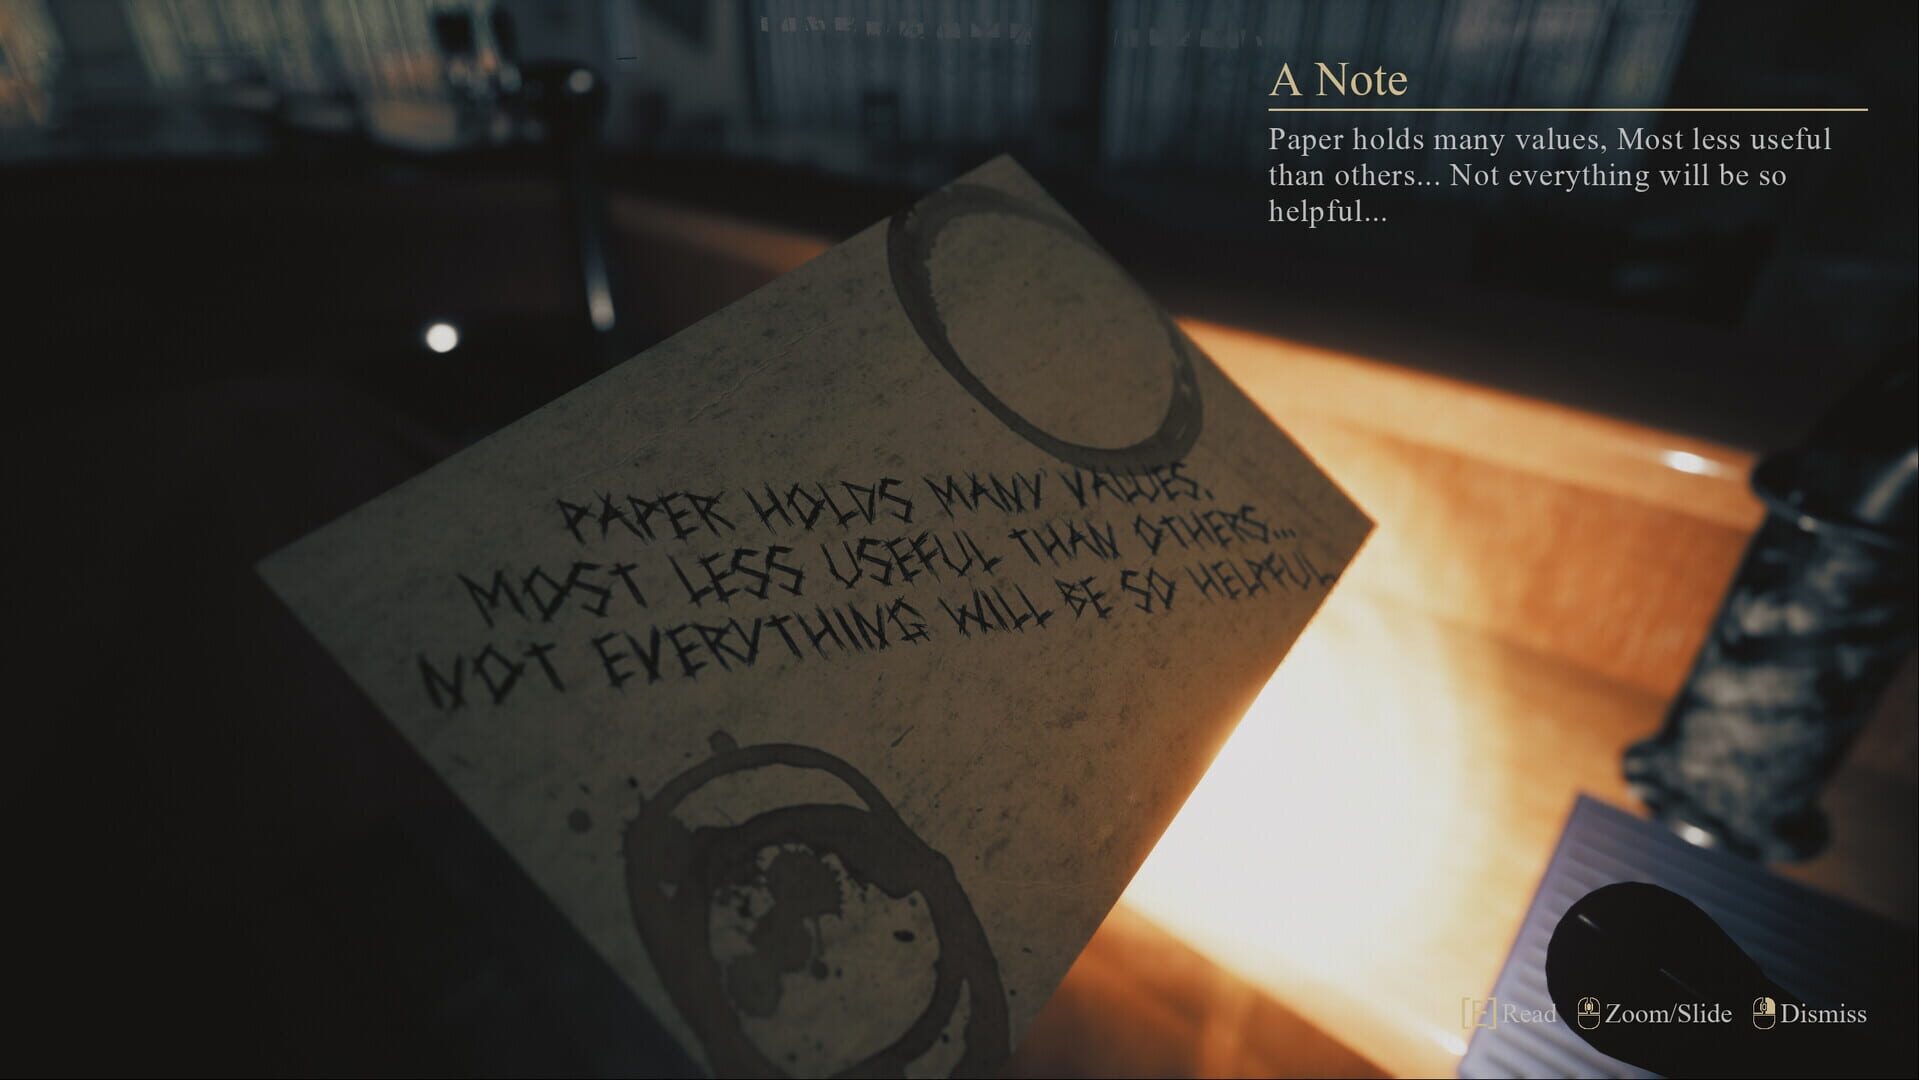 A Note
Paper holds many values, Most less useful
than others... Not everything will be so
helpful...
PAPER HOLDS MANY VALUES,
MOST LESS USEFUL THAN OTHERS...
NOT EVERYTHING WILL BE SO HELPFUL..
[E] Read Zoom/Slide Dismiss